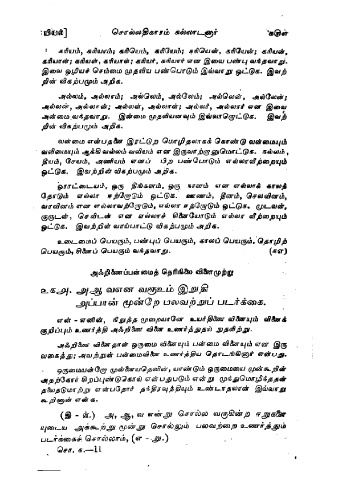 யியல்] சொல்லதிகாரம் கல்லாடனார்
கரியம், கரியாம்; கரியெம், கரியேம்; கரியென், கரியேன்; கரியன்,
கரியான்; கரியள், கரியாள்; கரியர், கரியார் என இவை பண்பு வந்தவாறு.
இவை ஒழியச் செம்மை முதலிய பண்பொடும் இவ்வாறு ஒட்டுக. இவற்
றின் விகற்பமும் அறிக.
அல்லம், அல்லாம்; அல்லெம், அல்லேம்; அல்லென், அல்லேன்;
அல்லன், அல்லான்; அல்லள், அல்லாள்; அல்லர், அல்லார் என இவை
அன்மை வந்தவாறு. இன்மை முதலியனவும் இவ்வாறொட்டுக. இவற்
றின் விகற்பமும் அறிக.
வன்மை என்பதனை இரட்டுற மொழிதலாகக் கொண்டு வன்மையும்
வலிமையும் ஆக்கி வல்லம் வலியம் என இருவாற்றானுமொட்டுக. கல்லம்,
தீயம், சேயம், அணியம் எனப் பிற பண்பொடும் எல்லாவீற்றையும்
ஒட்டுக. இவற்றின் விகற்பமும் அறிக.
ஓராட்டையம், ஒரு திங்களம், ஒரு காலம் என எல்லாக் காலத்
தோடும் எல்லா ஈற்றோடும் ஒட்டுக. ஊணம், தீனம், செலவினம்,
வரவினம் என எல்லாவற்றோடும், எல்லா ஈற்றொடும் ஒட்டுக. முடவன்,
குருடன், செவிடன் என எல்லாச் சினையோடும் எல்லா வீற்றையும்
ஒட்டுக. இவற்றின் வாய்பாட்டு விகற்பமும் அறிக.
உடைமைப் பெயரும், பண்புப் பெயரும், காலப் பெயரும், தொழிற்
பெயரும், சினைப் பெயரும் வந்தவாறு.
அஃறிணைப்பன்மைத் தெரிநிலை வினைமுற்று
உகஅ. அ ஆ வஎன வரூஉம் இறுதி
அப்பான் மூன்றே பலவற்றுப் படர்க்கை.
என்-எனின், நிறுத்த முறையானே உயர்திணை வினையும் வினைக்
குறிப்பும் உணர்த்தி அஃறிணை வினை உணர்த்துதல் நுதலிற்று.
அஃறிணை வினைதான் ஒருமை வினையும் பன்மை வினையும் என இரு
வகைத்து; அவற்றுள் பன்மைவினை உணர்த்திய தொடங்கினார் என்பது.
ஒருமையன்றே முன்வையற்பாலது, யாண்டும் ஒருமையை முன்கூறின்
அதற்கோர் சிறப்புண்டுகொல் என்பதுபடும் என்று முந்துமொழிந்ததன்
தலைதடுமாற்று என்பதோர் தந்திரவுத்தியும் உண்டாதலான் இவ்வாறு
கூறினான் என்க.
(இ-ள்.) அ, ஆ, வ என்று சொல்ல வருகின்ற ஈறுகளை
யுடைய அக்கூற்று மூன்று சொல்லும் பலவற்றை உணர்த்தும்
படர்க்கைச் சொல்லாம், (எ-று.)
சொ. க.—11